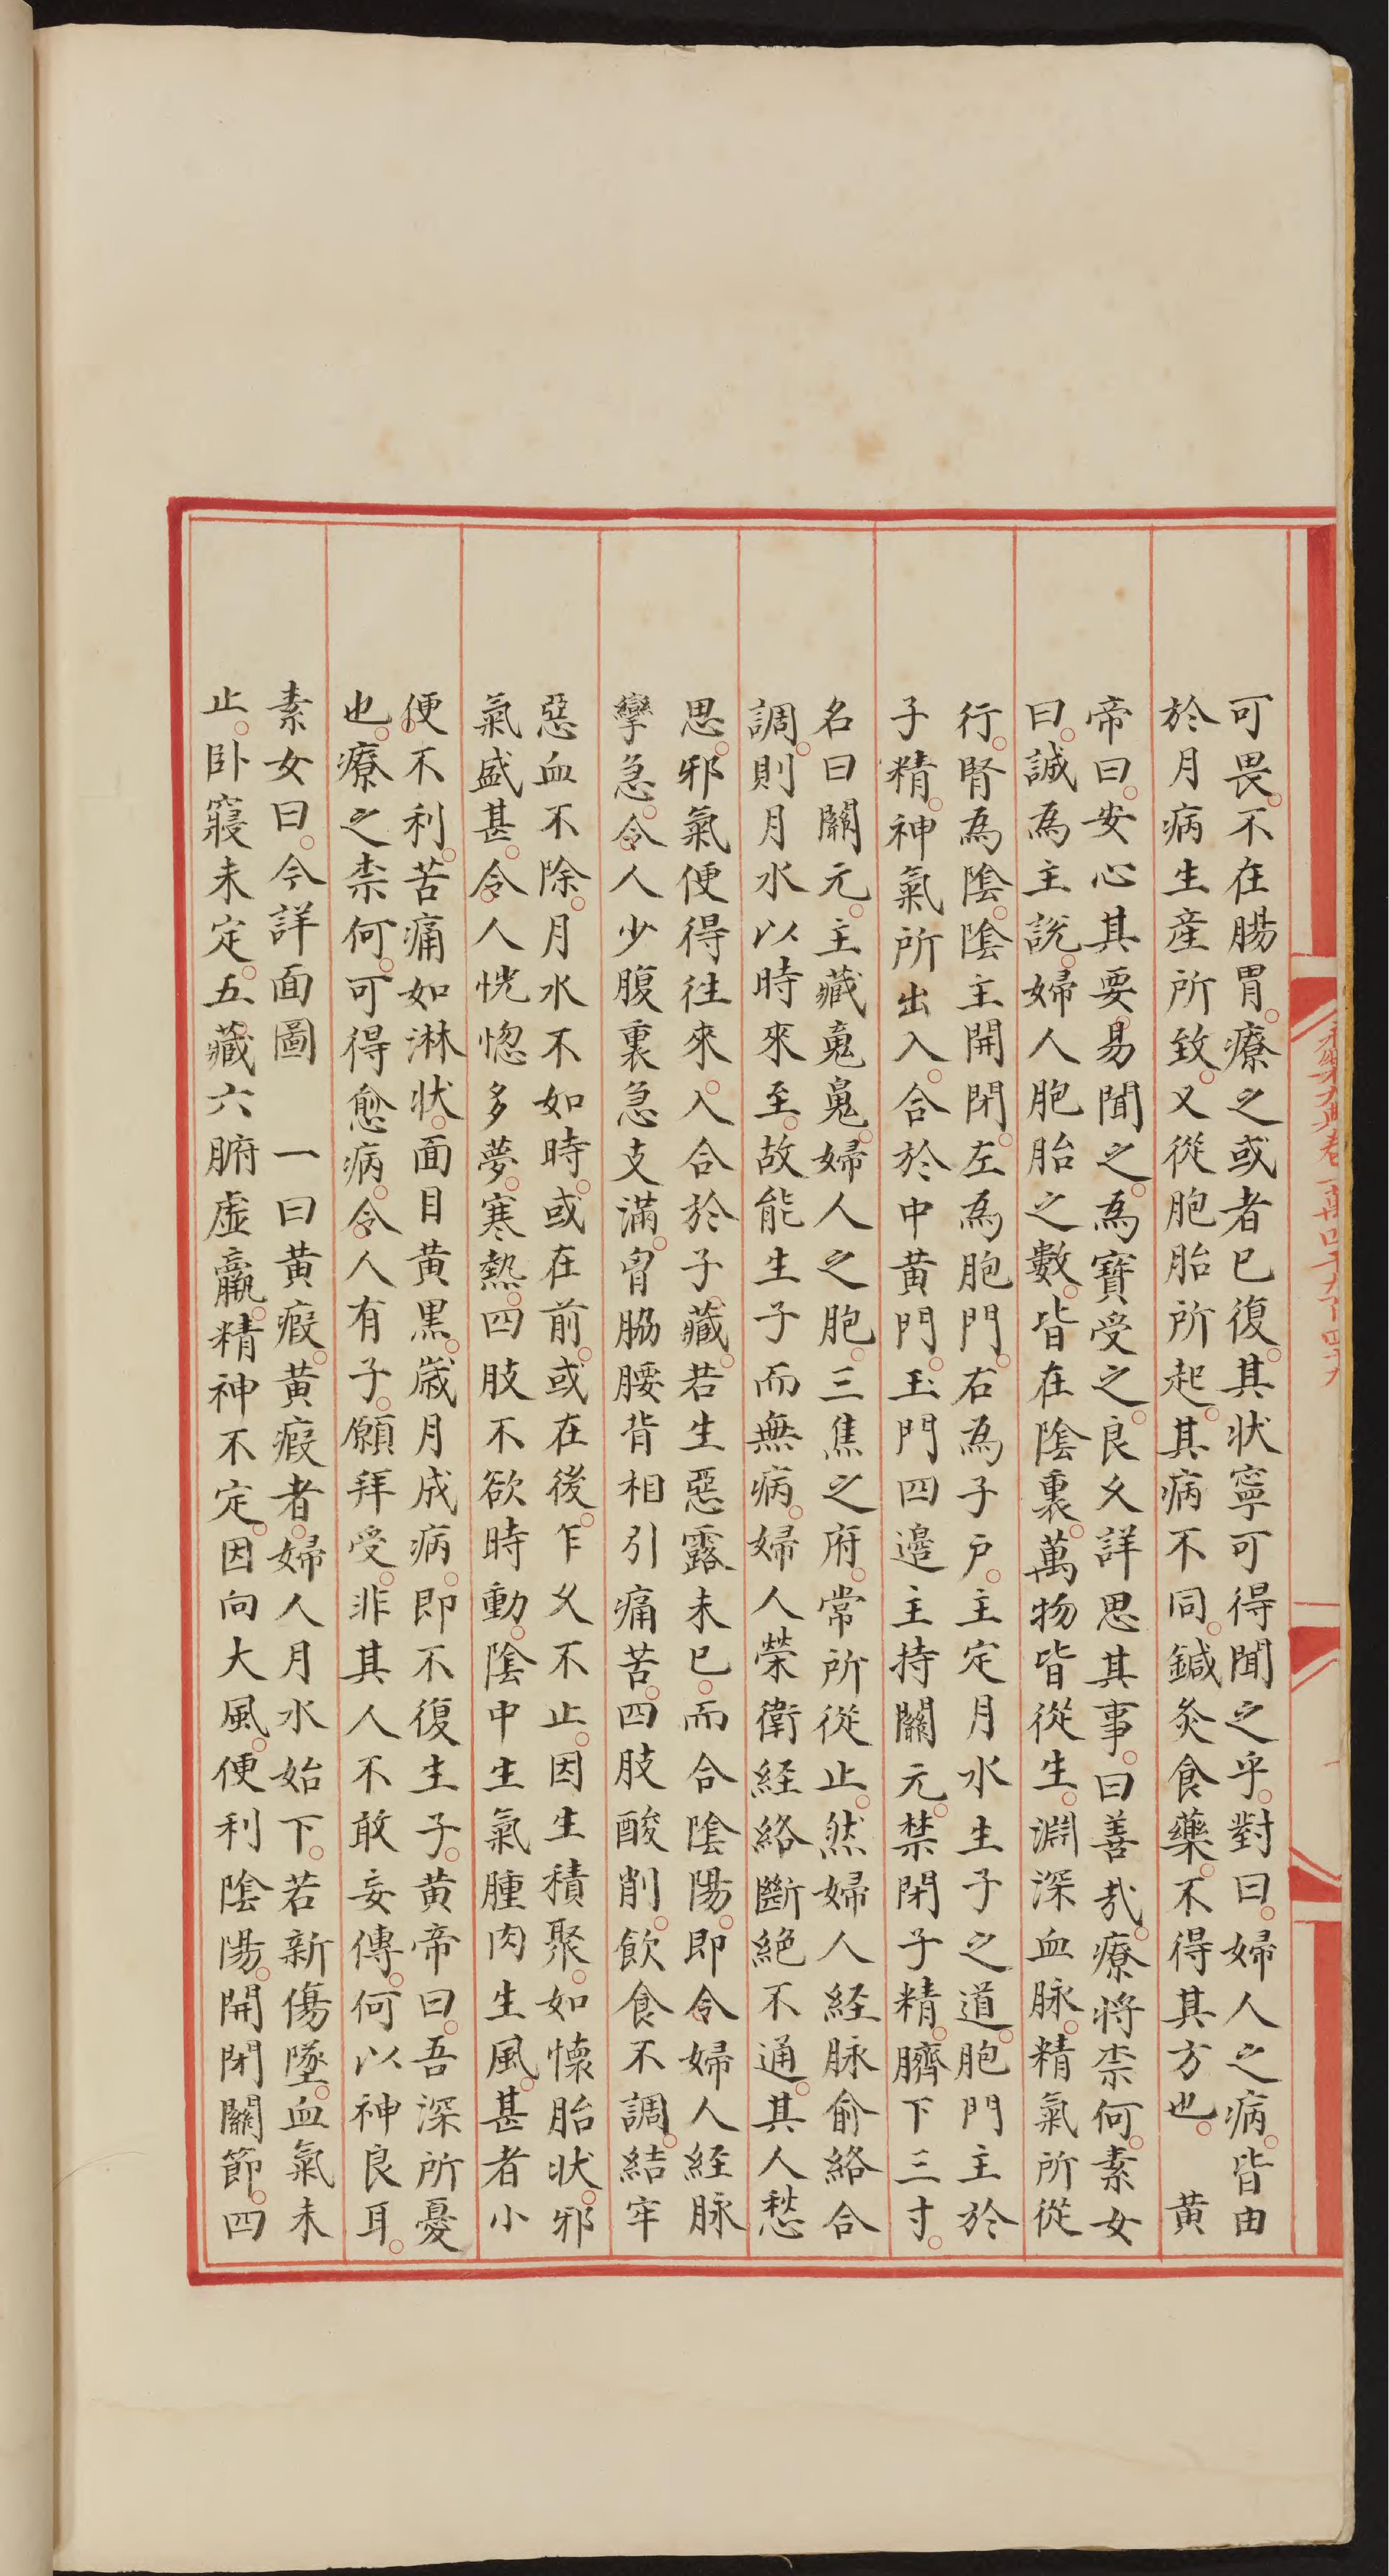 可畏不在腸胃療之或者已復其状寧可得聞之乎對曰婦人之病皆由
於月病生産所致又從胞胎所起其病不同鍼灸食藥不得其方也 黄
帝曰安心其要易聞之為寶受之良久詳思其事曰善哉療將柰何素女
曰誠為主說婦人胞胎之數皆在隂裏萬物皆從生淵深血脉精氣所從
行腎為隂隂主開閉左為胞門右為子户主定月水生子之道胞門主於
子精神氣所出入合於中黄門玉門四邉主持關元禁閉子精臍下三寸
名曰關元主藏䰟㒵婦人之胞三焦之府常所從止然婦人経脉俞絡合
調則月水以時來至故能生子而無病婦人榮衛経絡斷絶不通其人愁
思邪氣便得徃來入合於子藏若生惡露未已而合隂陽即令婦人経脉
攣急令人少腹裏急支滿胷脇腰背相引痛苦四肢酸削飲食不調結牢
惡血不除月水不如時或在前或在後乍久不止因生積聚如懷胎状邪
氣盛甚令人恍惚多夢寒熱四肢不欲時動隂中生氣腫肉生風甚者小
便不利苦痛如淋状面目黄黒歳月成病即不復生子黄帝曰吾深所憂
也療之柰何可得愈病令人有子願拜受非其人不敢妄傳何以神良耳
素女曰今詳面圖 一曰黄瘕黄瘕者婦人月水始下若新傷墜血氣未
止卧寢未定五藏六腑虛羸精神不定因向大風便利隂陽開閉關節四